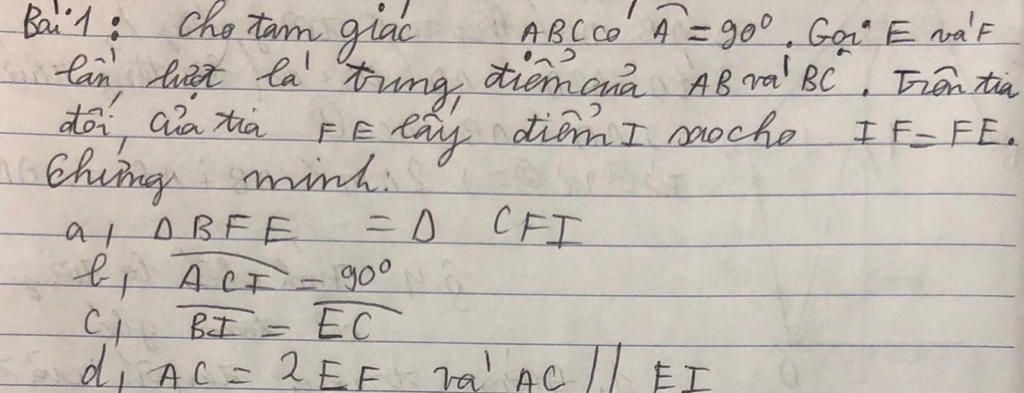 Bài 1: Cho tam giác ABC có Â = 90°. Gọi E và F
lần lượt là trung điểm của AB và BC. Trên tia
đối của tia FE lấy điểm I sao cho IF = FE.
Chứng minh:
a, Δ BFE = Δ CFI
b, \widehat{ACI} = 90°
c, \widehat{BI} = \widehat{EC}
d, AC = 2 EF và AC // EI